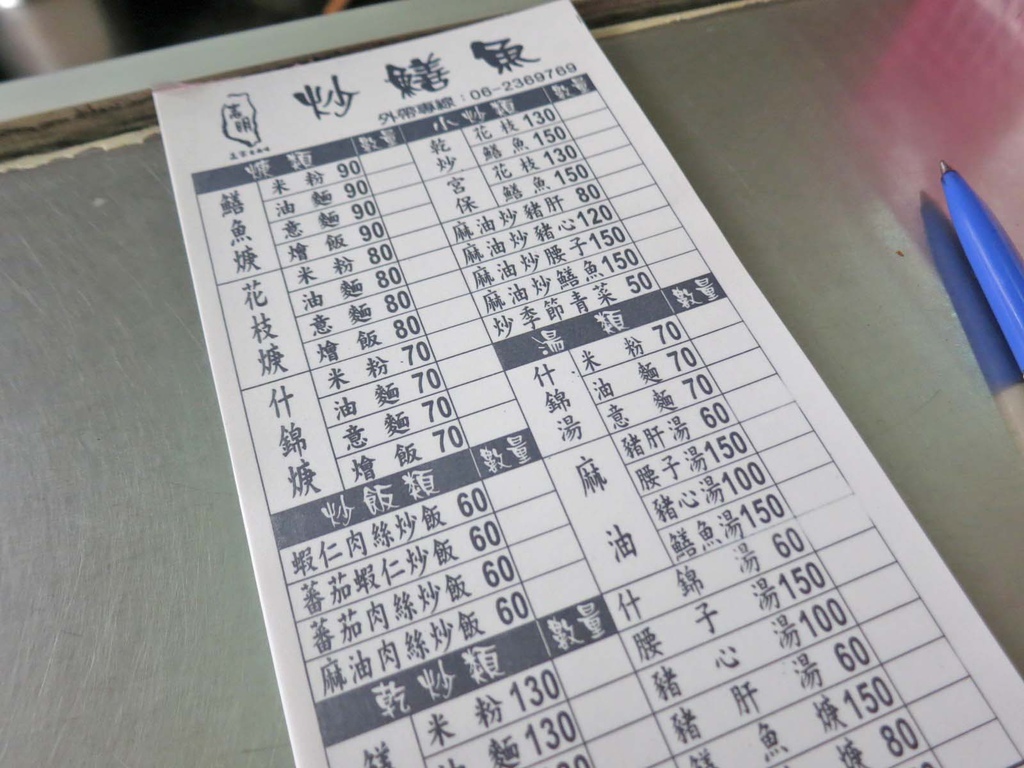 炒鱔魚
外帶專線：06-2369769
羹類 數量
鱔魚焿
米粉 90
油麵 90
意麵 90
燴飯 90
花枝焿
米粉 80
油麵 80
意麵 80
燴飯 80
什錦焿
米粉 70
油麵 70
意麵 70
燴飯 70
炒飯類 數量
蝦仁肉絲炒飯 60
蕃茄蝦仁炒飯 60
蕃茄肉絲炒飯 60
麻油肉絲炒飯 60
乾炒類 數量
米粉 130
麵 130
小炒類 數量
乾炒
花枝 130
鱔魚 150
宮保
花枝 130
鱔魚 150
麻油炒豬肝 80
麻油炒豬心 120
麻油炒腰子 150
麻油炒鱔魚 150
炒季節青菜 50
湯類 數量
什錦湯
米粉 70
油麵 70
意麵 70
麻油
豬肝湯 60
腰子湯 150
豬心湯 100
鱔魚湯 150
什錦湯 60
腰子湯 150
豬心湯 100
豬肝湯 60
鱔魚焿 150
焿 80